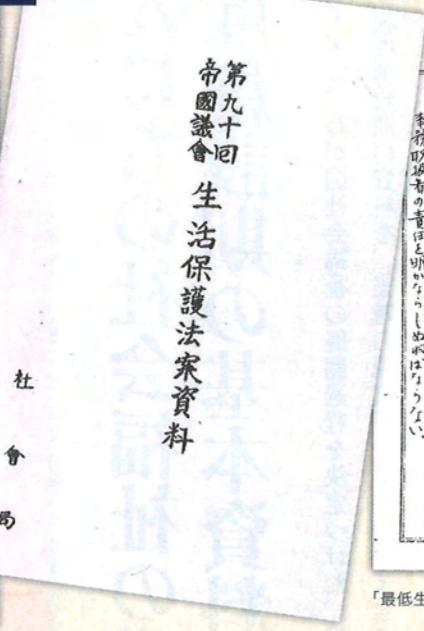 第九十回
帝國議會
生活保護法案資料
社會局
事務取扱者の責任を明かならしめねばならない。
「最低生